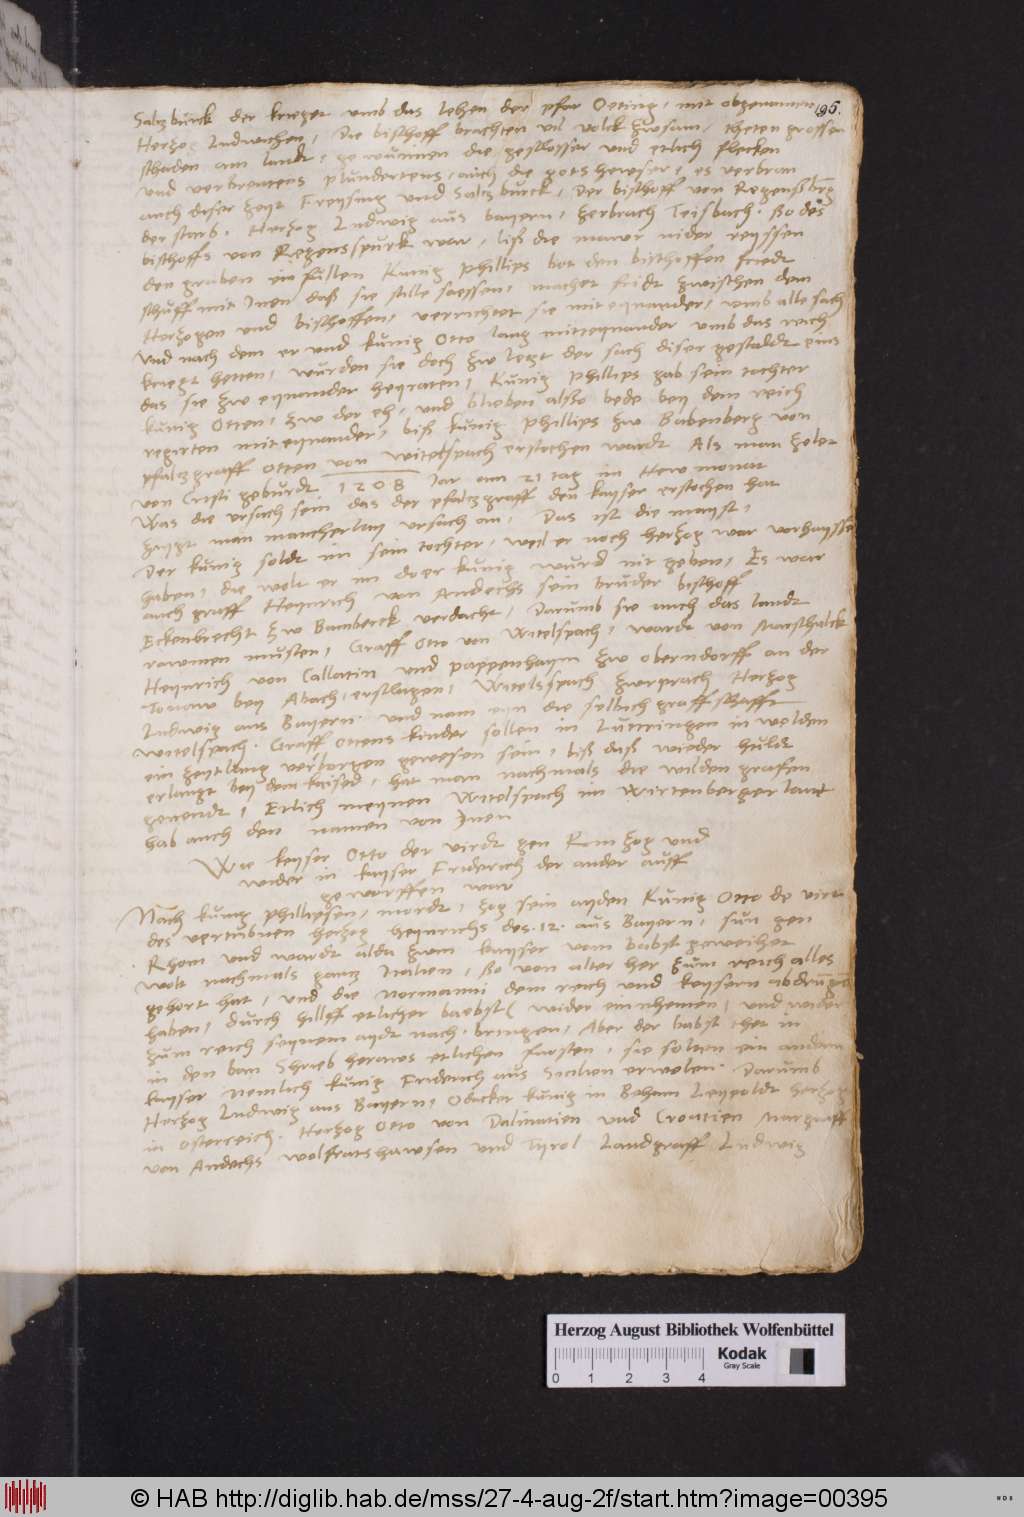 195.
Saltzburck der krieget umb das lehen der pfar Oeting, mit obgenomen
Hertzog Ludwichen, Die bischoff brachten vil volck zwsam, theten grossen
schaden am landt, gewunnen die geschlosser und etlich flecken
und verbrentens plundertens, auch die gotshewser, es verbran
auch diser zeyt Freysing und Saltzburck, Der bischoff von Regenßburg
der starb. Hertzog Ludwig aus bayern, zerbrach Teisbach. ßo des
bischoffs von Regensspurk war, liß die mawr nider reyssen
den graben ein füllen Kunig Phillips bot den bischoffen friedt
schuff mit Inen daß sie stille sessen, machet fridt zwischen dem
Hertzogen und bischoffen, verrichtet sie mit eynander, umb alle sach
Und nach dem er und kunig Otto lang mitteynander umb das reich
kriegt hetten, wurden sie doch zw letzt der sach diser gestaldt eins
das sie zw eynander heyraten, Kunig Phillips gab sein tochter
kunig Otten, zw der eh, und blieben alßo bede bey dem reich
regirten mit eynander, biß kunig Phillips zw Babenberg von
pfaltzgraff Otten von Witelspach erstochen wardt Als man zelet
von Cristi geburdt 1208 Jar am 21 tag im Hewmonat
Was die ursach sein das der pfaltzgraff den kayser erstochen hat
zeygt man mancherlay ursach an, Das ist die mayst,
Der kunig soldt im sein tochter, weil er noch hertzog war verhayssen
haben, die wolt er im do er kunig wurd nit geben, Es war
auch graff Heynrich von Andechs sein bruder bischoff
Eckenbrecht zw Bamberck verdacht, Darumb sie auch das landt
rawmen musten, Graff Otto von Witelspach, wardt von Marschalck
Heynrich von Callatin und pappenhaym zw oberndorff an der
Tonaw bey Abach, erschlagen, Witelsspach zwprach Hertzog
Ludwig aus Bayern. und nam eyn die selbich graffschafft
witelspach. Graff Ottens kinder sollen in Luttringen in welden
ein zeytlang verborgen gewesen sein, biß daß wieder huldt
erlangt bey dem kaised, hat man nachmals die wilden grafen
genendt, Etlich meynen Witelspach im Wirtenberger lant
hab auch den namen von Inen
Wie keyser Otto der virdt gen Rom zog und
wider in keyser Friderich der ander auff
geworffen war
Nach kunig phillipsen, mordt, zog sein ayden Kunig Otto de virt
des vertribnen hertzog heynrichs des .12. aus Bayern, sun gen
Rhom und wardt alda zum keyser vom babst geweihet
wolt nachmals gantz Italien, ßo von alter her zum reich alles
gehort hat, und die Normanni dem reich und keysern abdrungen
haben, durch hilff etlicher baebst wider einnhemen, und wider
zum reich seynem aydt nach bringen, Aber der babst thet in
in den ban Schrieb heraws etlichen fursten, sie solten ein andern
kayser Nemlich kunig Friderich aus Sicilien erwelen. Darumb
Hertzog Ludwig aus Bayern, Odacker kunig in Beham Leypoldt hertzog
in Osterreich. Hertzog Otto von Dalmatien und Croatien Margraff
von Andechs wolfratshawsen und Tyrol Landgraff Ludwig
Herzog August Bibliothek Wolfenbüttel
Kodak
Gray Scale
0 1 2 3 4
© HAB http://diglib.hab.de/mss/27-4-aug-2f/start.htm?image=00395